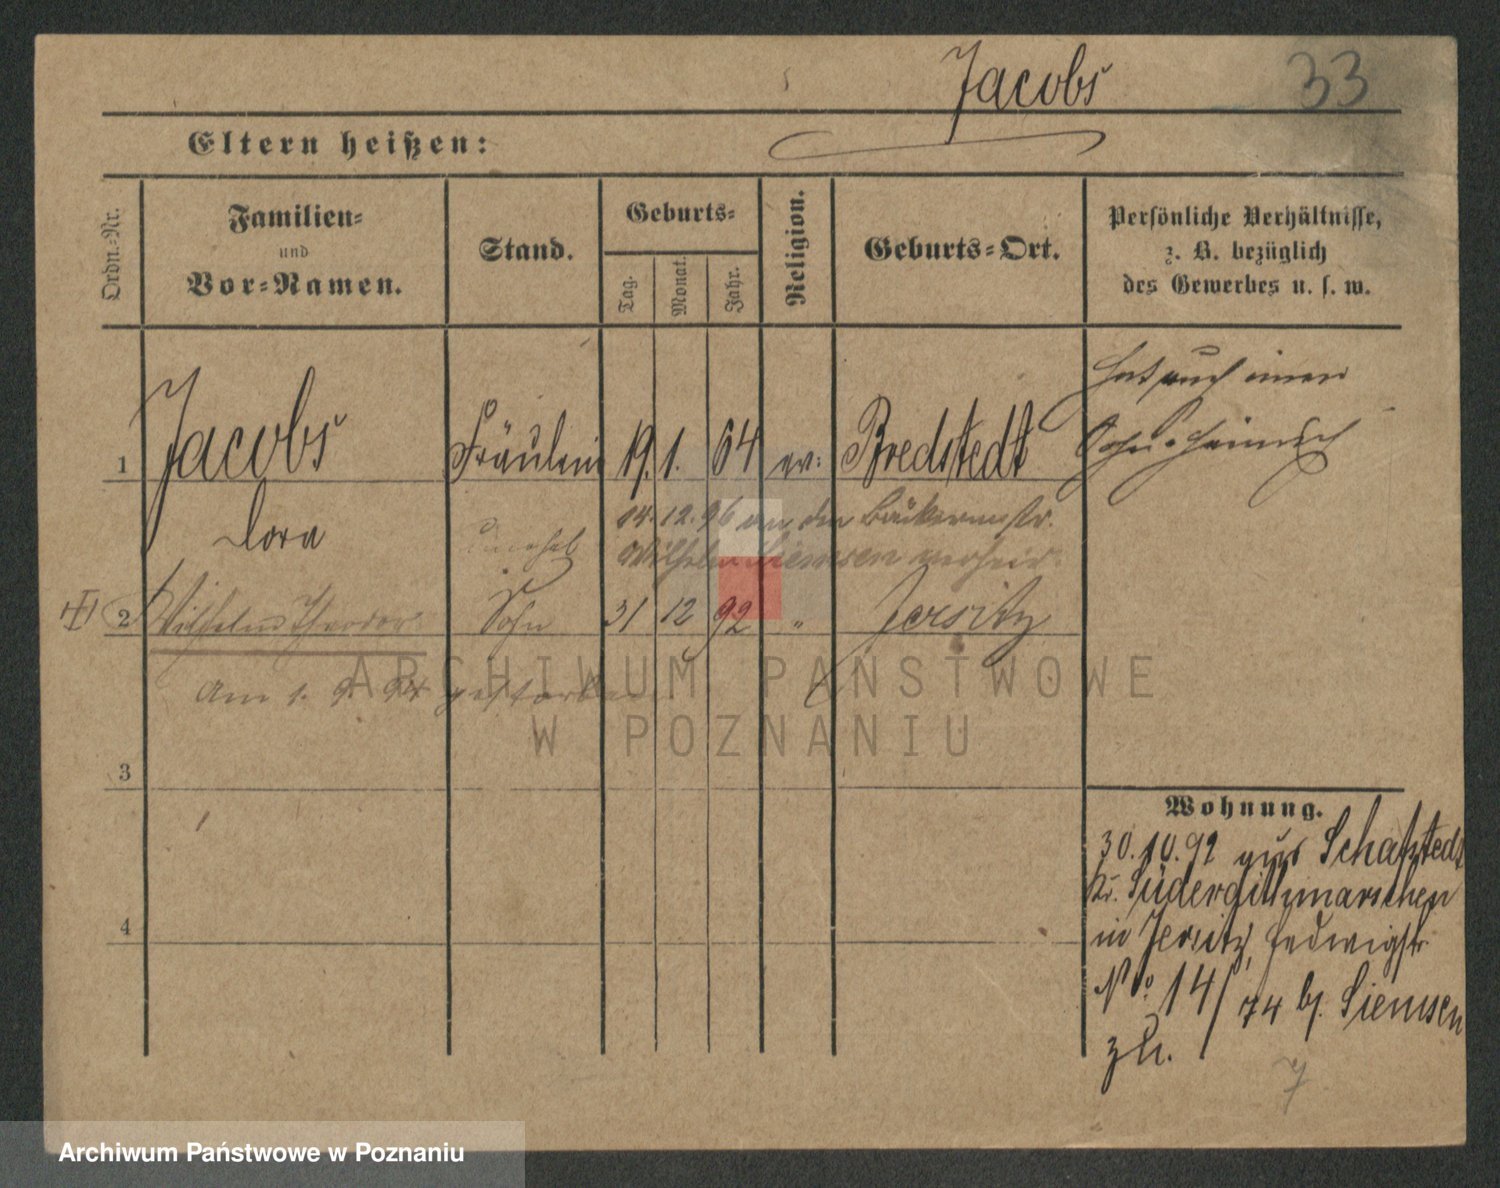 Jacobs
33
Eltern heißen:
Ordn.-Nr.
Familien-
und
Vor-Namen.
Stand.
Geburts-
Tag.
Monat.
Jahr.
Religion.
Geburts-Ort.
Persönliche Verhältnisse,
z. B. bezüglich
des Gewerbes u. s. w.
1 Jacobs Fräulein 19. 1. 64 ev: Bredstedt
hat auch einen
Sohn Heinrich
Dora
14. 12. 96 an den Bäckermstr.
unehel
Wilhelm Siemsen verheir.
2 Wilhelm Theodor Sohn 31 12 92 " Jersitz
Am 1. 9. 94 gestorben
3
4
Wohnung.
30.10.92 aus Schafstedt
Kr. Süderdithmarschen
in Jersitz, Hedwigstr
No. 14/74 bj. Siemsen
zu.
7
ARCHIWUM PAŃSTWOWE
W POZNANIU
Archiwum Państwowe w Poznaniu